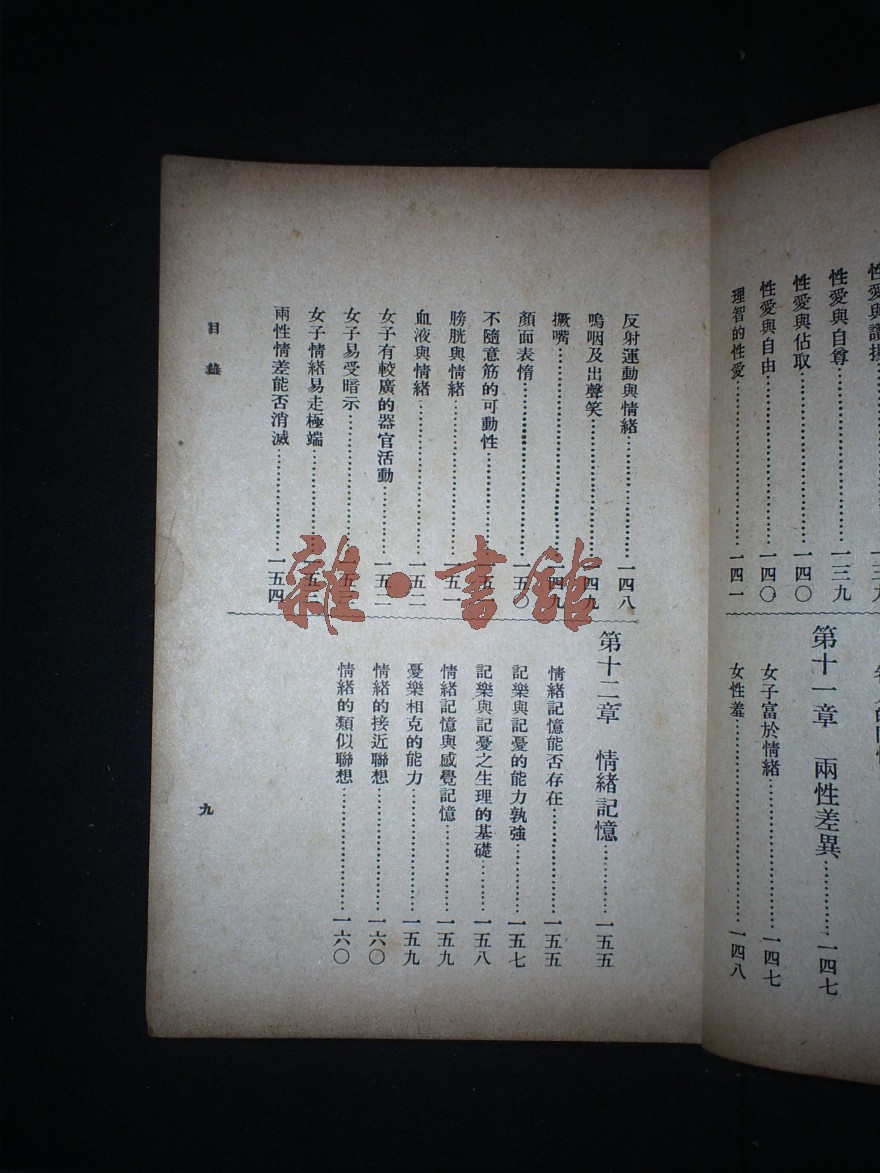 性愛與讚揚…………一三九
性愛與自尊…………一三九
性愛與佔取…………一四〇
性愛與自由…………一四〇
理智的性愛…………一四一
第十一章 兩性差異…………一四七
女子富於情緒…………一四七
女性羞…………一四八
反射運動與情緒…………一四八
嗚咽及出聲笑…………一四九
撅嘴…………一四九
顏面表惰…………一五〇
不隨意筋的可動性…………一五
膀胱與情緒…………一五一
血液與情緒…………一五二
女子有較廣的器官活動…………一五二
女子易受暗示…………一五三
女子情緒易走極端…………一五
兩性情差能否消滅…………一五四
第十二章 情緒記憶…………一五五
情緒記憶能否存在…………一五五
記樂與記憂的能力孰強…………一五七
記樂與記憂之生理的基礎…………一五八
情緒記憶與感覺記憶…………一五九
憂樂相克的能力…………一五九
情緒的接近聯想…………一六〇
情緒的類似聯想…………一六〇
目錄
九
雜·書館